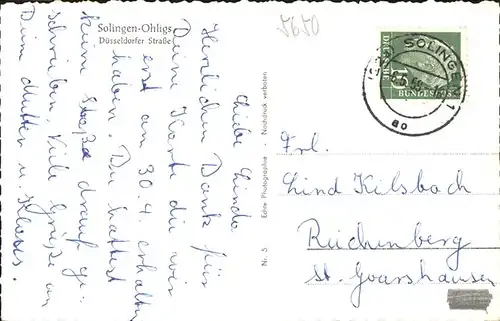 Solingen-Ohligs
Düsseldorfer Straße
5670
Liebe Linda
Herzlichen Dank für
Deine Karte die wir
erst am 30.4. erhalten
haben. Du hattest
keine Straße drauf ge-
schrieben, Viele Grüße von
Deine Mutter u. Klaus.
Nr. 5 Echte Photographie - Nachdruck verboten
SOLINGEN 1
ao
DEUTSCHE
BUNDESPOST
Frl.
Lind Kilsbach
Reichenberg
St. Goarshausen